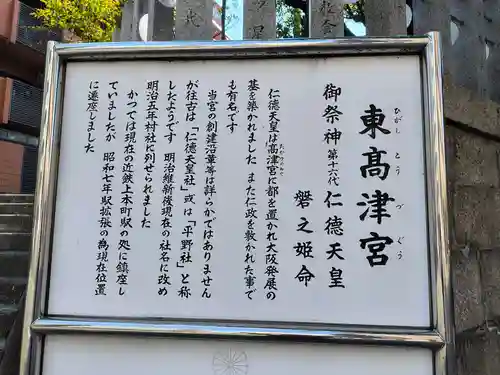 東高津宮
ひがし とう づ ぐう
御祭神 第十六代 仁德天皇
磐之姫命
仁徳天皇は高津宮に都を置かれ大阪発展の
たかつのみや
基を築かれました また仁政を敷かれた事で
も有名です
当宮の創建沿革等は詳らかではありません
が往古は「仁徳天皇社」或は「平野社」と称
したようです 明治維新後現在の社名に改め
明治五年村社に列せられました
かつては現在の近鉄上本町駅の処に鎮座し
ていましたが 昭和七年駅拡張の為現在位置
に遷座しました